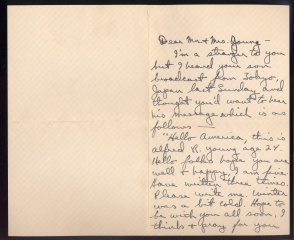 Dear Mr & Mrs. Young –
I'm a stranger to you
but I heard your son
broadcast from Tokyo,
Japan last Sunday and
thought you'd want to hear
his message which is as
follows —
"Hello America, this is
Alfred R. Young age 24.
Hello folks hope you are
well & happy. I am fine.
Have written three times.
Please write me, winter
was a bit cold. Hope to
be with you all soon, I
think & pray for you